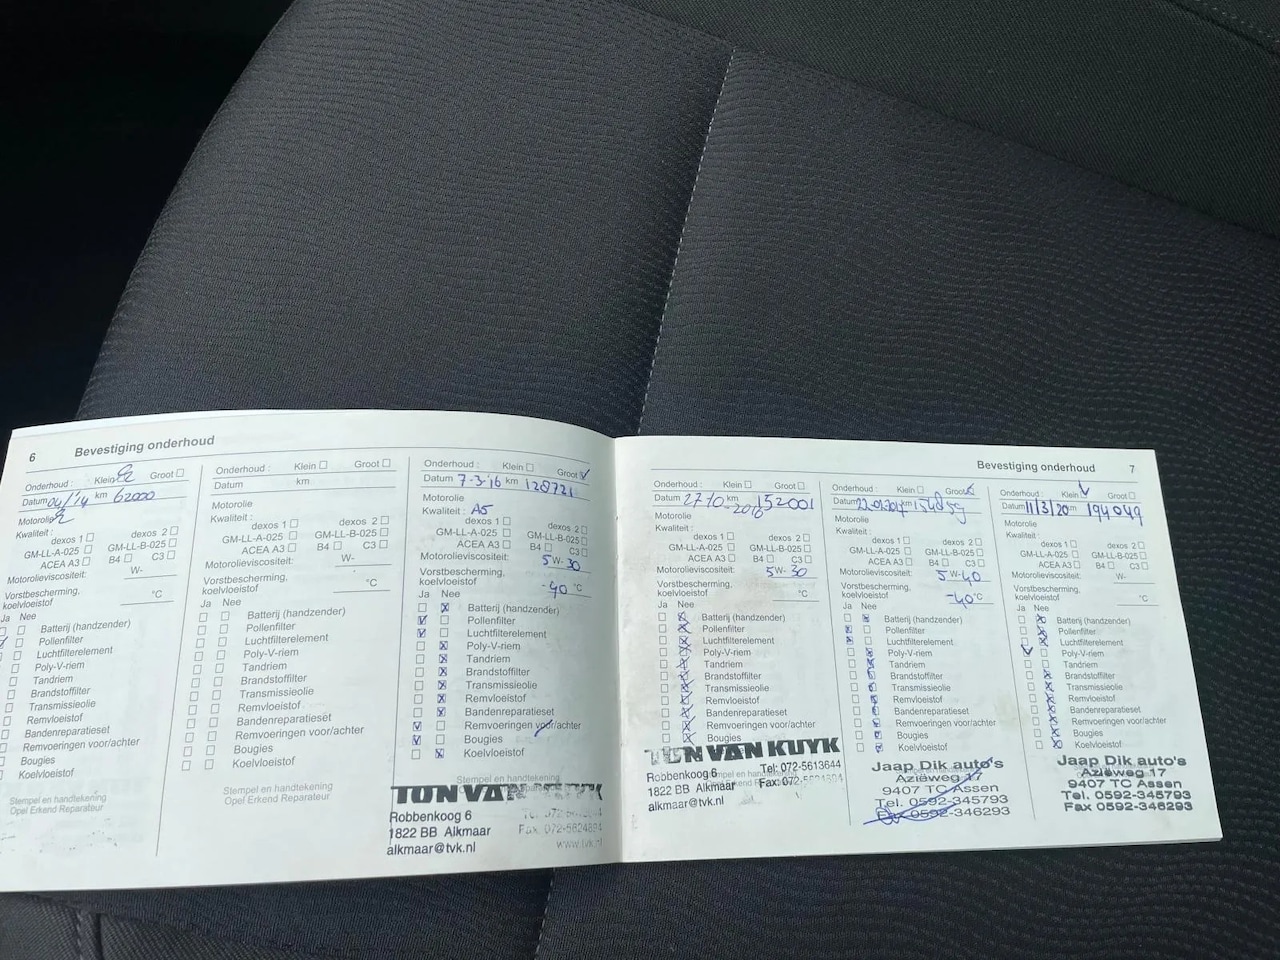 6 Bevestiging onderhoud
Onderhoud : Klein Groot
Datum 04/'14 km 62000
Motorolie
Kwaliteit :
dexos 1 dexos 2
GM-LL-A-025 GM-LL-B-025
ACEA A3 B4 C3
Motorolieviscositeit: W-
Vorstbescherming, koelvloeistof °C
Ja Nee
Batterij (handzender)
Pollenfilter
Luchtfilterelement
Poly-V-riem
Tandriem
Brandstoffilter
Transmissieolie
Remvloeistof
Bandenreparatieset
Remvoeringen voor/achter
Bougies
Koelvloeistof
Stempel en handtekening
Opel Erkend Reparateur
Onderhoud : Klein Groot
Datum km
Motorolie
Kwaliteit :
dexos 1 dexos 2
GM-LL-A-025 GM-LL-B-025
ACEA A3 B4 C3
Motorolieviscositeit: W-
Vorstbescherming, koelvloeistof °C
Ja Nee
Batterij (handzender)
Pollenfilter
Luchtfilterelement
Poly-V-riem
Tandriem
Brandstoffilter
Transmissieolie
Remvloeistof
Bandenreparatieset
Remvoeringen voor/achter
Bougies
Koelvloeistof
Stempel en handtekening
Opel Erkend Reparateur
Onderhoud : Klein Groot
Datum 7-3-'16 km 128721
Motorolie
Kwaliteit : A5
dexos 1 dexos 2
GM-LL-A-025 GM-LL-B-025
ACEA A3 B4 C3
Motorolieviscositeit: 5 W- 30
Vorstbescherming, koelvloeistof -40 °C
Ja Nee
Batterij (handzender)
Pollenfilter
Luchtfilterelement
Poly-V-riem
Tandriem
Brandstoffilter
Transmissieolie
Remvloeistof
Bandenreparatieset
Remvoeringen voor/achter
Bougies
Koelvloeistof
Stempel en handtekening
TON VAN
Robbenkoog 6
1822 BB Alkmaar Fax 072-5624894
alkmaar@tvk.nl www.tvk.nl
Bevestiging onderhoud 7
Onderhoud : Klein Groot
Datum 27-10-2016 km 152001
Motorolie
Kwaliteit :
dexos 1 dexos 2
GM-LL-A-025 GM-LL-B-025
ACEA A3 B4 C3
Motorolieviscositeit: 5 W- 30
Vorstbescherming, koelvloeistof °C
Ja Nee
Batterij (handzender)
Pollenfilter
Luchtfilterelement
Poly-V-riem
Tandriem
Brandstoffilter
Transmissieolie
Remvloeistof
Bandenreparatieset
Remvoeringen voor/achter
Bougies
TON VAN KUYK
Robbenkoog 6 Tel: 072-5613644
1822 BB Alkmaar Fax: 072-
alkmaar@tvk.nl
Onderhoud : Klein Groot
Datum km
Motorolie
Kwaliteit :
dexos 1 dexos 2
GM-LL-A-025 GM-LL-B-025
ACEA A3 B4 C3
Motorolieviscositeit: 5 W- 40
Vorstbescherming, koelvloeistof -40 °C
Ja Nee
Batterij (handzender)
Pollenfilter
Luchtfilterelement
Poly-V-riem
Tandriem
Brandstoffilter
Transmissieolie
Remvloeistof
Bandenreparatieset
Remvoeringen voor/achter
Bougies
Koelvloeistof
Jaap Dik auto's
Aziëweg 17
9407 TC Assen
Tel. 0592-345793
Fax 0592-346293
Onderhoud : Klein Groot
Datum 11/3/20 km 194049
Motorolie
Kwaliteit :
dexos 1 dexos 2
GM-LL-A-025 GM-LL-B-025
ACEA A3 B4 C3
Motorolieviscositeit: W-
Vorstbescherming, koelvloeistof °C
Ja Nee
Batterij (handzender)
Pollenfilter
Luchtfilterelement
Poly-V-riem
Tandriem
Brandstoffilter
Transmissieolie
Remvloeistof
Bandenreparatieset
Remvoeringen voor/achter
Bougies
Koelvloeistof
Jaap Dik auto's
Aziëweg 17
9407 TC Assen
Tel. 0592-345793
Fax 0592-346293